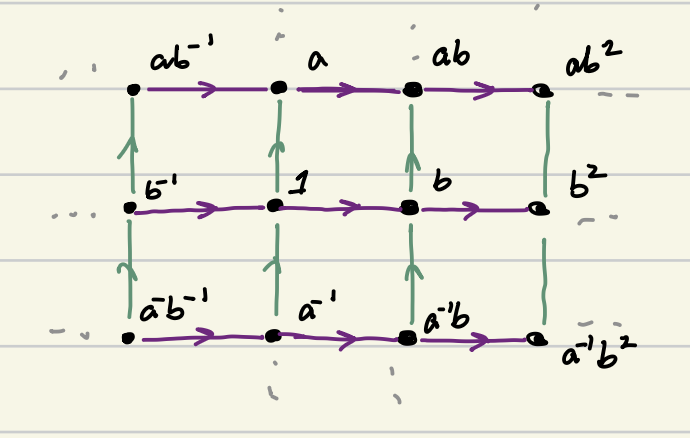 ab⁻¹ a ab ab²
b⁻¹ 1 b b²
a⁻¹b⁻¹ a⁻¹ a⁻¹b a⁻¹b²